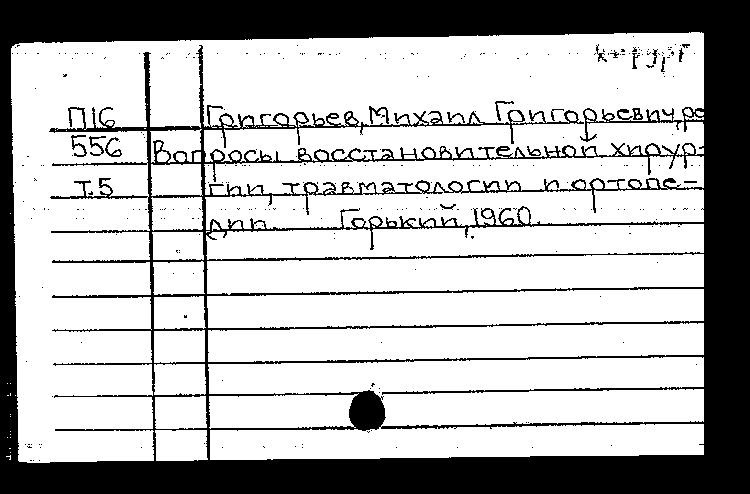 П16 Григорьев, Михаил Григорьевич, ре
556 Вопросы восстановительной хирур-
Т.5 гии, травматологии и ортопе-
дии. Горький, 1960.